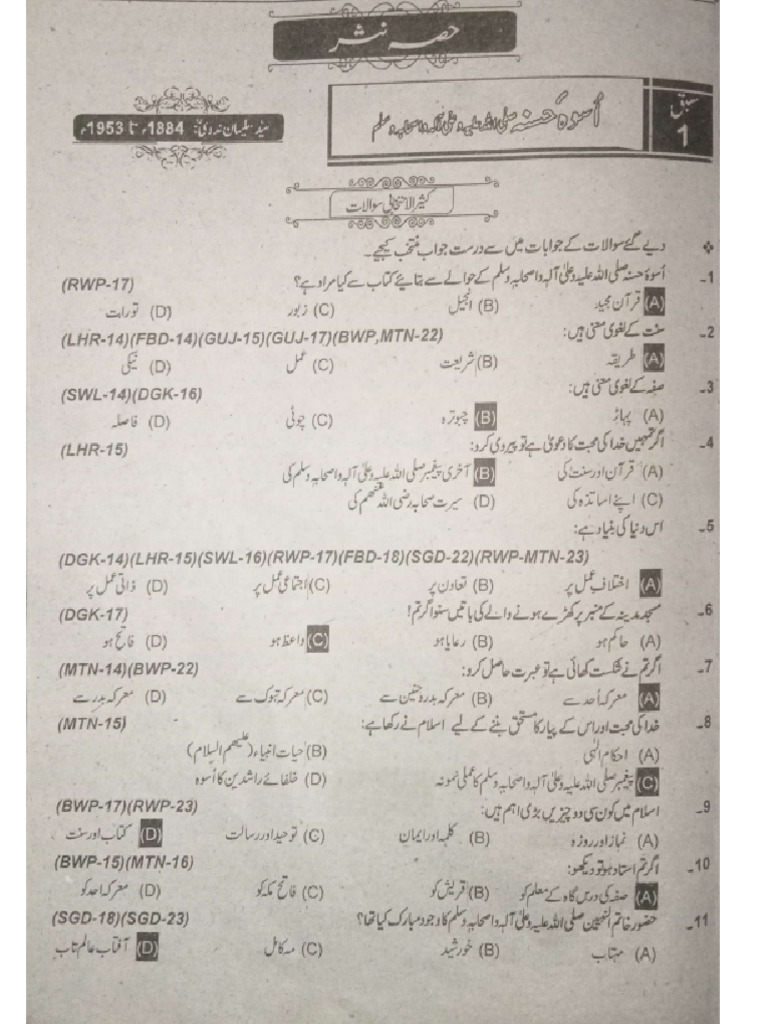 حصہ نثر
سبق 1
اُسوۂ حسنہ صلی اللہ علیہ وعلیٰ آلہ واصحابہ وسلم
سید سلیمان ندویؒ: 1884ء تا 1953ء
کثیر الانتخابی سوالات
❖ دیے گئے سوالات کے جوابات میں سے درست جواب منتخب کیجیے۔
1۔ اُسوۂ حسنہ صلی اللہ علیہ وعلیٰ آلہ واصحابہ وسلم کے حوالے سے بتایئے کتاب سے کیا مراد ہے؟ (RWP-17)
(A) قرآن مجید (B) انجیل (C) زبور (D) تورات
2۔ سنت کے لغوی معنی ہیں: (LHR-14)(FBD-14)(GUJ-15)(GUJ-17)(BWP,MTN-22)
(A) طریقہ (B) شریعت (C) عمل (D) نیکی
3۔ صفہ کے لغوی معنی ہیں: (SWL-14)(DGK-16)
(A) پہاڑ (B) چبوترہ (C) چوٹی (D) فاصلہ
4۔ اگر تمہیں خدا کی محبت کا دعویٰ ہے تو پیروی کرو: (LHR-15)
(A) قرآن اور سنت کی (B) آخری پیغمبر صلی اللہ علیہ وعلیٰ آلہ واصحابہ وسلم کی
(C) اپنے اساتذہ کی (D) سیرت صحابہ رضی اللہ عنھم کی
5۔ اس دنیا کی بنیاد ہے:
(DGK-14)(LHR-15)(SWL-16)(RWP-17)(FBD-18)(SGD-22)(RWP-MTN-23)
(A) اختلافِ عمل پر (B) تعاون پر (C) اجتماعی عمل پر (D) ذاتی عمل پر
6۔ مسجد مدینہ کے منبر پر کھڑے ہونے والے کی باتیں سنو اگر تم! (DGK-17)
(A) حاکم ہو (B) رعایا ہو (C) واعظ ہو (D) فاتح ہو
7۔ اگر تم نے شکست کھائی ہے تو عبرت حاصل کرو: (MTN-14)(BWP-22)
(A) معرکہ اُحد سے (B) معرکہ بدر و حنین سے (C) معرکہ تبوک سے (D) معرکہ بدر سے
8۔ خدا کی محبت اور اس کے پیار کا مستحق بننے کے لیے اسلام نے رکھا ہے: (MTN-15)
(A) احکام الٰہی (B) حیات انبیاء (علیھم السلام)
(C) پیغمبر صلی اللہ علیہ وعلیٰ آلہ واصحابہ وسلم کا عملی نمونہ (D) خلفائے راشدین کا اُسوہ
9۔ اسلام میں کون سی دو چیزیں بڑی اہم ہیں: (BWP-17)(RWP-23)
(A) نماز اور روزہ (B) کلمہ اور ایمان (C) توحید اور رسالت (D) کتاب اور سنت
10۔ اگر تم استاد ہو تو دیکھو: (BWP-15)(MTN-16)
(A) صفہ کی درس گاہ کے معلم کو (B) قریش کو (C) فاتح مکہ کو (D) معرکہ احد کو
11۔ حضور خاتم النبیین صلی اللہ علیہ وعلیٰ آلہ واصحابہ وسلم کا وجود مبارک کیا تھا؟ (SGD-18)(SGD-23)
(A) مہتاب (B) خورشید (C) مہ کامل (D) آفتاب عالم تاب